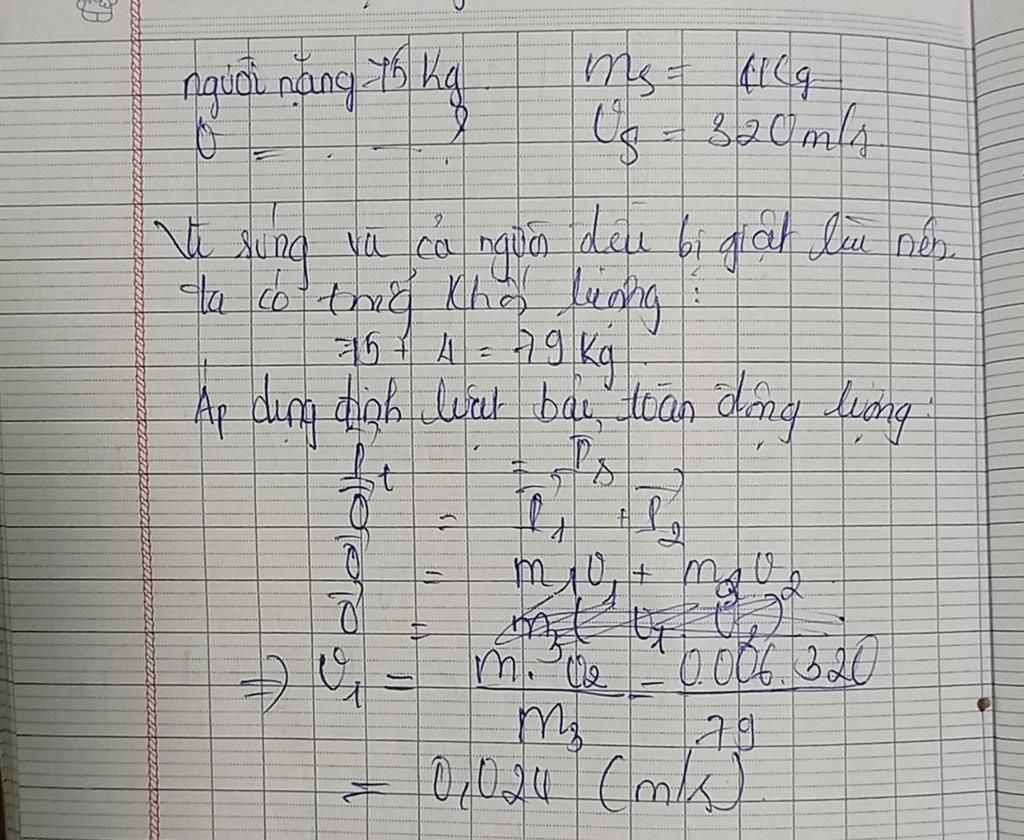 người nặng 75 Kg ms = 4Kg
v = . . . ? vs = 320 m/s
Vì súng và cả người đều bị giật lùi nên
ta có tổng khối lượng :
75 + 4 = 79 Kg
Áp dụng định luật bảo toàn động lượng :
Pt = Ps
0 = P1 + P2
0 = m1v1 + m2v2
0 =
=> v1 = m. v2 / m3 = 0.006.320 / 79
= 0,024 (m/s)